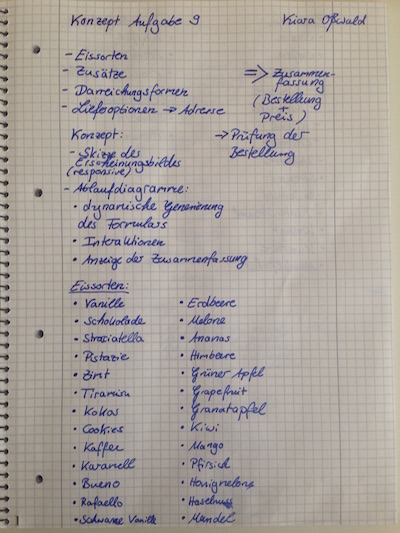 Konzept Aufgabe 9
Kiara Oßwald
- Eissorten
- Zusätze
- Darreichungsformen
- Lieferoptionen → Adresse
=> Zusammen-
fassung
(Bestellung
+
Preis)
→ Prüfung der
Bestellung
Konzept:
- Skizze des
Erscheinungsbildes
(responsive)
- Ablaufdiagramme:
• dynamische Generierung
des Formulars
• Interaktionen
• Anzeige der Zusammenfassung
Eissorten:
• Vanille
• Schokolade
• Straciatella
• Pistazie
• Zimt
• Tiramisu
• Kokos
• Cookies
• Kaffee
• Karamell
• Bueno
• Rafaello
• Schwarze Vanille
• Erdbeere
• Melone
• Ananas
• Himbeere
• Grüner Apfel
• Grapefruit
• Granatapfel
• Kiwi
• Mango
• Pfirsich
• Honigmelone
• Haselnuss
• Mandel